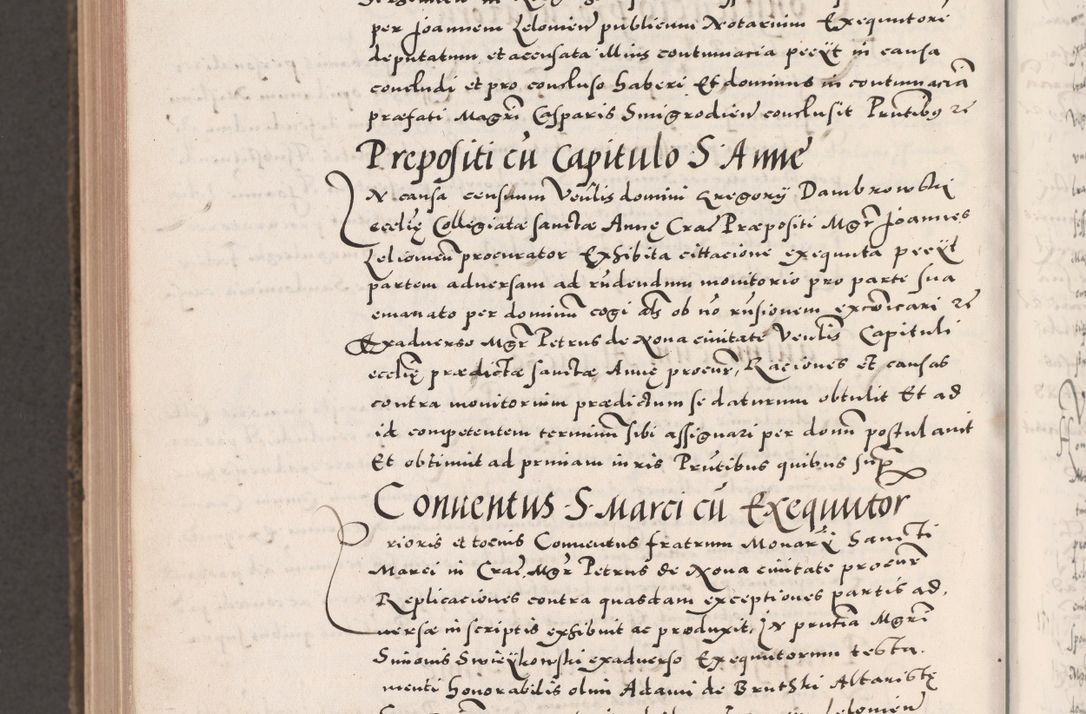 per Joannem Lelomien publicum Notarium Exequutore
deputatum et accusata illius contumacia peeÿt in causa
concludi et pro concluso haberi Et dominus in contumaciā
præfati Magri Casparis Smigrodien conclusit Prntibꝫ rē
Prepositi cū Capitulo S Anne
IN causa censuum Venlis domini Gregorÿ Dambrowski
ecclię Collegiatæ sanctæ Annę Crac Præpositi Mgr Joannes
Leliomien procurator Exhibita cittacione exequuta peeÿt
partem adversam ad rudendum monitorio pro parte sua
emanato per dominum cogi als ob nō rusionem excoicari rē
Exadverso Mgr Petrus de Nova civitate Venlis Capituli
ecclię prædictæ sanctæ Annę procur, Raciones et causas
contra monitorium prædictum se daturum obtulit Et ad
id competentem terminum sibi assignari per domn postulavit
Et obtinuit ad primam iuris Prntibus quibus sup
Conventus S Marci cū Exequutor
Prioris et tocius Conventus fratrum Monarÿ Sancti
Marci in Crac Mgr Petrus de Nova civitate procur
Replicaciones contra quasdam exceptiones partis ad,
versæ in scriptis exhibuit ac produxit, IN prntia Mgri
Simonis Swieÿkowski exadverso Exequutorum testa,
menti honorabilis olim Adami de Brutski Altaristę